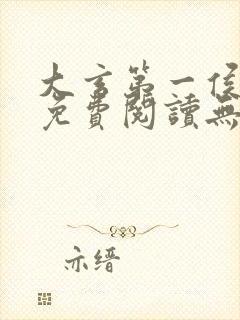 大言第一侯
免費閱讀無
亦缙